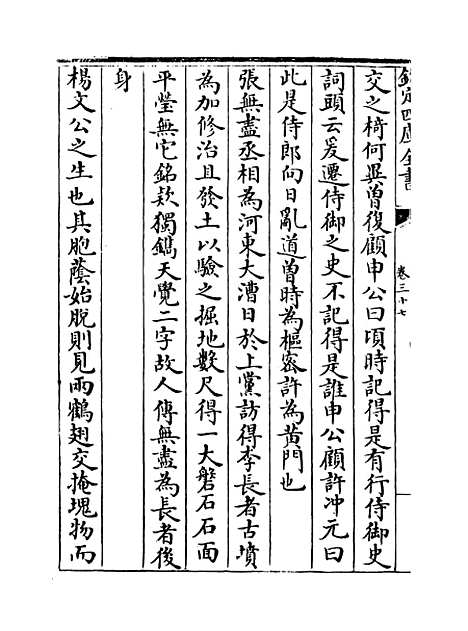 欽定四庫全書
卷三十七
交之椅何異曾復顧申公曰頃時記得是有行侍御史
詞頭云爰遷侍御之史不記得是誰申公顧許冲元曰
此是侍郎向日亂道曽時為樞密許為黄門也
張無盡丞相為河東大漕日於上黨訪得李長者古墳
為加修治且發土以驗之掘地數尺得一大磐石石面
平瑩無它銘欵獨鐫天覺二字故人傳無盡為長者後
身
楊文公之生也其胞䕃始脱則見兩鶴翅交掩塊物而